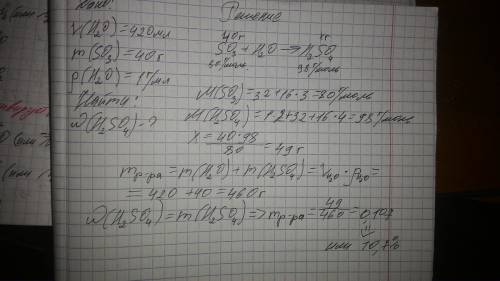 Дано:
V(H₂O)=420мл
m(SO₃)=40г
ρ(H₂O)=1г/мл
Найти:
ω(H₂SO₄)-?
Решение
40г хг
SO₃+H₂O→H₂SO₄
80г/моль 98г/моль
M(SO₃)=32+16·3=80г/моль
M(H₂SO₄)=1·2+32+16·4=98г/моль
x=40·98/80=49г
mр-ра=m(H₂O)+m(H₂SO₄)=V H₂O·ρH₂O=
=420+40=460г
ω(H₂SO₄)=m(H₂SO₄)=>mр-ра=49/460=0,107
или 10,7%